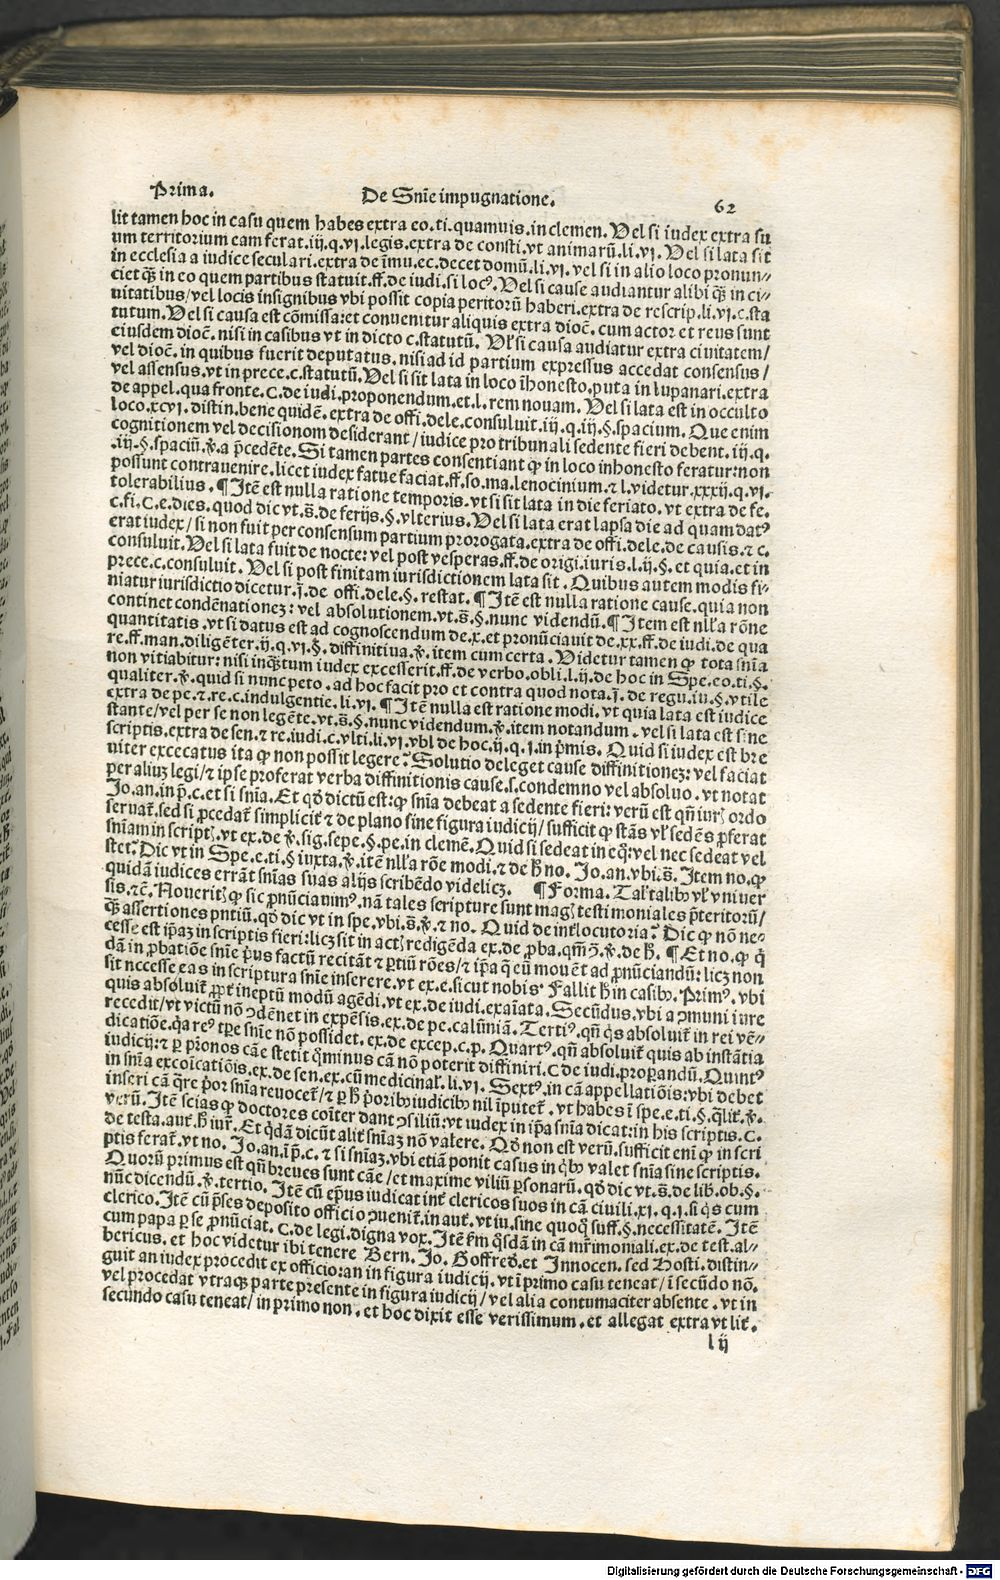 Prima.
De Snīe impugnatione.
62
lit tamen hoc in casu quem habes extra eo.ti.quamuis.in clemen. Vel si iudex extra su
um territorium eam ferat.iij.q.vj.legis.extra de consti.vt animarū.li.vj. Vel si lata sit
in ecclesia a iudice seculari.extra de īmu.ec.decet domū.li.vj. vel si in alio loco pronun⸗
ciet q̄ȝ in eo quem partibus statuit.ff.de iudi.si locꝰ. Vel si cause audiantur alibi q̄ȝ in ci⸗
uitatibus/vel locis insignibus vbi possit copia peritorū haberi.extra de rescrip.li.vj.c.sta
tutum. Vel si causa est cōmissa:et conuenitur aliquis extra dioē. cum actor et reus sunt
eiusdem dioē. nisi in casibus vt in dicto c.statutū. Vl̕ si causa audiatur extra ciuitatem/
vel dioē. in quibus fuerit deputatus. nisi ad id partium expressus accedat consensus/
vel assensus.vt in prece.c.statutū. Vel si sit lata in loco īhonesto, puta in lupanari.extra
de appel.qua fronte.C.de iudi.proponendum.et.l.rem nouam. Vel si lata est in occulto
loco.xcvj.distin.bene quidē.extra de offi.dele.consuluit.iij.q.iij.§.spacium. Que enim
cognitionem vel decisionom desiderant/iudice pro tribunali sedente fieri debent.iij.q.
.iij.§.spaciū.ꝟ.a p̄cedēte. Si tamen partes consentiant ꝙ in loco inhonesto feratur:non
possunt contrauenire.licet iudex fatue faciat.ff.so.ma.lenocinium.⁊ l.videtur.xxxij.q.vj.
tolerabilius. ¶ Itē est nulla ratione temporis.vt si sit lata in die feriato. vt extra de fe.
c.fi.C.e.dies. quod dic vt.s̄.de ferijs.§.vlterius. Vel si lata erat lapsa die ad quam datꝰ
erat iudex/si non fuit per consensum partium prorogata.extra de offi.dele.de causis.⁊ c.
consuluit. Vel si lata fuit de nocte:vel post vesperas.ff.de origi.iuris.l.ij.§.et quia.et in
prece.c.consuluit. Vel si post finitam iurisdictionem lata sit. Quibus autem modis fi⸗
niatur iurisdictio dicetur.j̄.de offi.dele.§.restat. ¶ Itē est nulla ratione cause.quia non
continet condēnationeȝ: vel absolutionem.vt.s̄.§.nunc videndū. ¶ Item est nll̕a rōne
quantitatis.vt si datus est ad cognoscendum de.x.et pronūciauit de.xx.ff.de iudi.de qua
re.ff.man.diligēter.ij.q.vj.§.diffinitiua.ꝟ.item cum certa. Videtur tamen ꝙ tota snīa
non vitiabitur:nisi inq̄ȝtum iudex excesserit.ff.de verbo.obli.l.ij.de hoc in Spe.eo.ti.§.
qualiter.ꝟ.quid si nunc peto.ad hoc facit pro et contra quod nota.j̄.de regu.iu.§.vtile
extra de pe.⁊ re.c.indulgentie.li.vj. ¶ Itē nulla est ratione modi.vt quia lata est iudice
stante/vel per se non legēte.vt.s̄.§.nunc videndum.ꝟ.item notandum. vel si lata est sine
scriptis.extra de sen.⁊ re.iudi.c.vlti.li.vj.vbl de hoc.ij.q.j.in p̄mis. Quid si iudex est bre
uiter excecatus ita ꝙ non possit legere? Solutio deleget cause diffinitioneȝ: vel faciat
per aliuȝ legi/⁊ ipse proferat verba diffinitionis cause.s.condemno vel absoluo. vt notat
Jo.an.in p̄.c.et si snīa. Et qd̄ dictū est:ꝙ snīa debeat a sedente fieri: verū est qn̄ iurꝭ ordo
seruat̄.sed si ꝓcedat̄ simplicit̄ ⁊ de plano sine figura iudicij/sufficit ꝙ stās vl̕ sedēs ꝓferat
snīam in scriptꝭ.vt ex.de ꝟ.sig.sepe.§.pe.in clemē. Quid si sedeat in eq̊:vel nec sedeat vel
stet? Dic vt in Spe.e.ti.§ iuxta.ꝟ.itē nll̕a rōe modi.⁊ de h̄ no. Jo.an.vbi.s̄. Item no.ꝙ
quidā iudices errāt snīas suas alijs scribēdo videlicȝ. ¶ Forma. Tal̕ talibꝰ vl̕ vniuer
sis.⁊ē. Nouerit̕ ꝙ sic ꝓnūciauimꝰ.nā tales scripture sunt magꝭ testimoniales p̄teritorū/
q̄ȝ assertiones pn̄tiū.qd̄ dic vt in spe.vbi.s̄.ꝟ.⁊ no. Quid de int̄locutoria? Dic ꝙ nō ne⸗
cesse est ip̄aȝ in scriptis fieri:licȝ sit in actꝭ redigēda ex.de ꝓba.qm̄ ꝯ̄.ꝟ.de h̄. ¶ Et no.ꝙ q̇
dā in ꝓbatiōe snīe p̄us factū recitāt ⁊ ꝑtiū rōes/⁊ ip̄a q̄ eū mouēt ad ꝓnūciandū: licȝ non
sit nccesse eas in scriptura snīe inserere.vt ex.e.sicut nobis. Fallit h̄ in casibꝰ. Primꝰ.vbi
quis absoluit̄ ꝓpt̄ ineptū modū agēdi.vt ex.de iudi.exaīata. Secūdus.vbi a ꝯmuni iure
recedit/vt victū nō ꝯdēnet in expēsis.ex.de pe.calūniā. Tertiꝰ.qn̄ q̇s absoluit̄ in rei vē⸗
dicatiōe.q̄a reꝰ tp̄e snīe nō possidet. ex.de excep.c.p. Quartꝰ.qn̄ absoluit̄ quis ab instātia
iudicij:⁊ ꝑ p̄ronos cāe stetit q̊minus cā nō poterit diffiniri.C de iudi.properandū. Quintꝰ
in snīa excoīcatiōis.ex.de sen.ex.cū medicinal̕.li.vj. Sextꝰ.in cā appellatiōis:vbi debet
inseri cā q̄re p̄or snīa reuocet̄/⁊ ꝑ h̄ p̄oribꝰ iudicibꝰ nil īputet̄. vt habes ī spe.e.ti.§.q̄lit̄.ꝟ.
verū. Itē scias ꝙ doctores coīter dant ꝯsiliū: vt iudex in ip̄a snīa dicat: in his scriptis. C.
de testa.aut̄.h̄ iur̄. Et q̇dā dicūt alit̄ snīaȝ nō valere. Qd̄ non est verū.sufficit eni ꝙ in scri
ptis ferat̄.vt no. Jo.an.ī p̄.c.⁊ si snīaȝ.vbi etiā ponit casus in q̇bꝰ valet snīa sine scriptis.
Quorū primus est qn̄ breues sunt cāe/et maxime viliū ꝑsonarū.qd̄ dic vt.s̄.de lib.ob.§.
nūc dicendū.ꝟ.tertio. Itē cū ep̄us iudicat int̄ clericos suos in cā ciuili.xj.q.j.si q̇s cum
clerico. Itē cū p̄ses deposito officio ꝯuenit̄.in aut̄.vt iu.sine quoq̊ suff.§.necessitatē. Itē
cum papa ꝑ se ꝓnūciat. C.de legi.digna vox. Itē ẜm q̊sdā in cā mr̄imoniali.ex.de test.al⸗
bericus. et hoc videtur ibi tenere Bern. Jo. Goffred̄.et Innocen. sed Hosti. distin⸗
guit an iudex procedit ex officio:an in figura iudicij.vt ī primo casu teneat/ī secūdo nō.
vel procedat vtraqȝ parte presente in figura iudicij/vel alia contumaciter absente. vt in
secundo casu teneat/in primo non. et hoc dixit esse verissimum. et allegat extra vt lit̄.
l ij
Digitalisierung gefördert durch die Deutsche Forschungsgemeinschaft - DFG